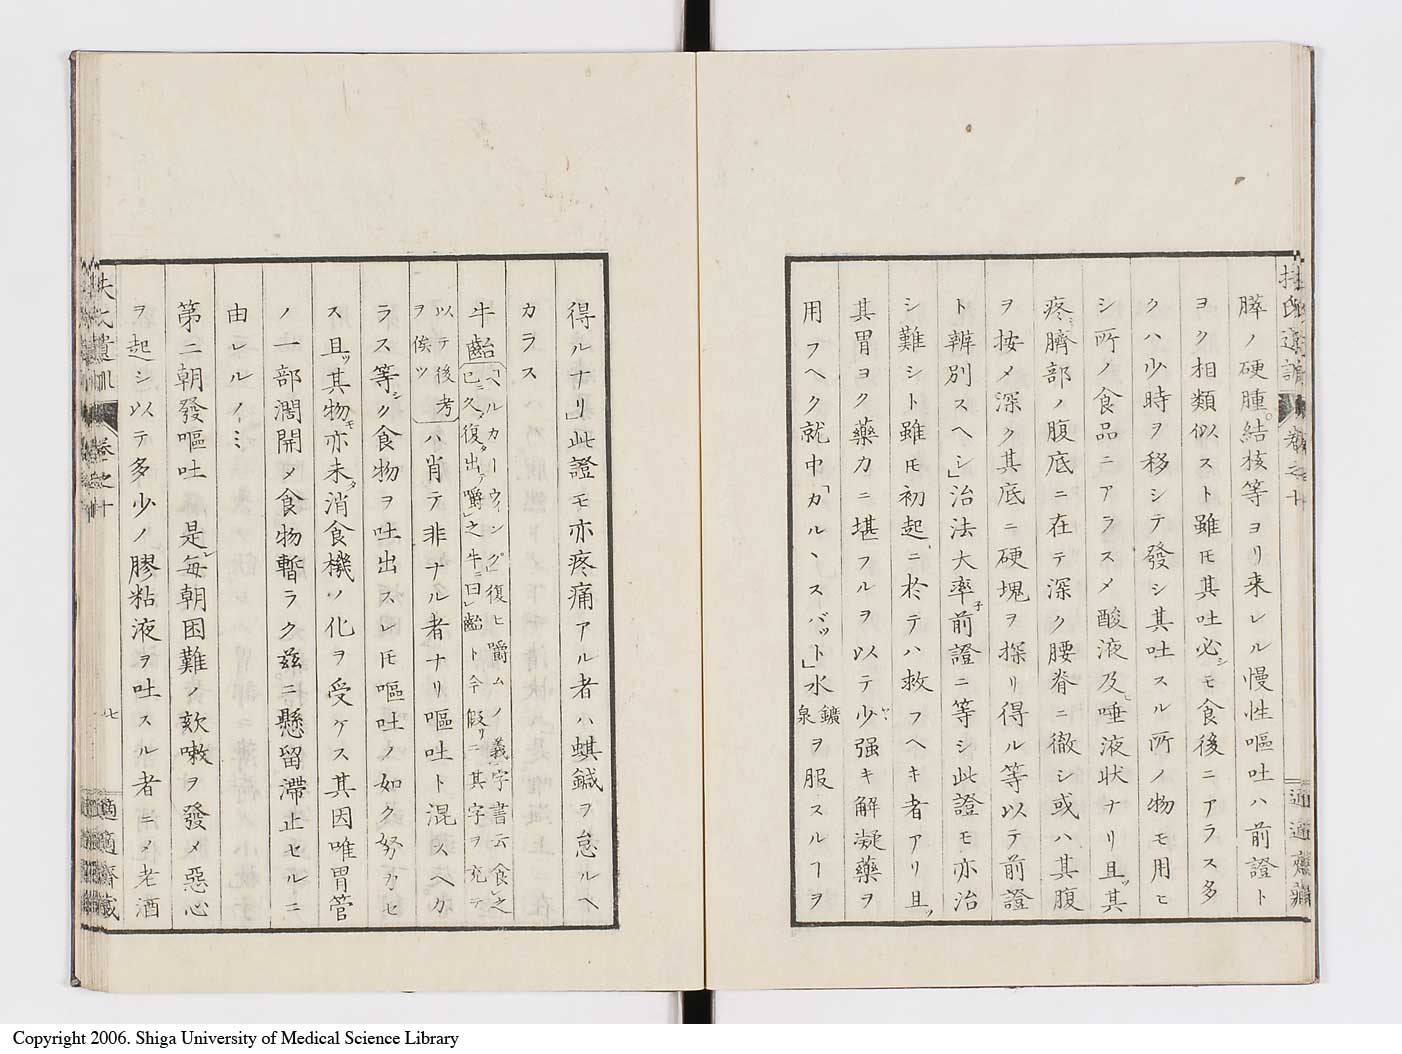 膵ノ硬腫結核等ヨリ来レル慢性嘔吐ハ前證ト
ヨク相類似スト雖モ其吐必シモ食後ニアラス多
クハ少時ヲ移シテ發シ其吐スル所ノ物モ用ヒ
シ所ノ食品ニアラスメ酸液及ヒ唾液状ナリ且ツ其
疼ミ臍部ノ腹底ニ在テ深ク腰脊ニ徹シ或ハ其腹
ヲ按メ深ク其底ニ硬塊ヲ探リ得ル等以テ前證
ト辨別スヘシ」治法大率子前證ニ等シ此證モ亦治
シ難シト雖モ初起ニ於テハ救フヘキ者アリ且ツ
其胃ヨク藥力ニ堪フルヲ以テ少ヤ强キ解凝藥ヲ
用フヘク就中「カルヽスバット」水鑛泉ヲ服スルヿヲ
扶氏遺訓 卷之十
適適齋藏
得ルナリ」此證モ亦疼痛アル者ハ蜞鍼ヲ怠ルヘ
カラス
牛齝「ヘルカーウィング」復ヒ嚼ムノ義字書云食之
已ニ久復出テ嚼之牛ニ曰齝ト今假リニ其字ヲ充テ
以テ後考
ヲ俟ツ
ハ肖テ非ナル者ナリ嘔吐ト混スヘカ
ラス等シク食物ヲ吐出スレモ嘔吐ノ如ク努力セ
ス且ツ其物モ亦未タ消食機ノ化ヲ受ケス其因唯胃管
ノ一部濶開メ食物暫ラク茲ニ懸留滯止セルニ
由レルノミ
第二朝發嘔吐 是レ毎朝困難ノ欬嗽ヲ發メ惡心
ヲ起シ以テ多少ノ膠粘液ヲ吐スル者ニメ老酒
扶氏遺訓 卷之十 七
適適齋藏
Copyright 2006. Shiga University of Medical Science Library